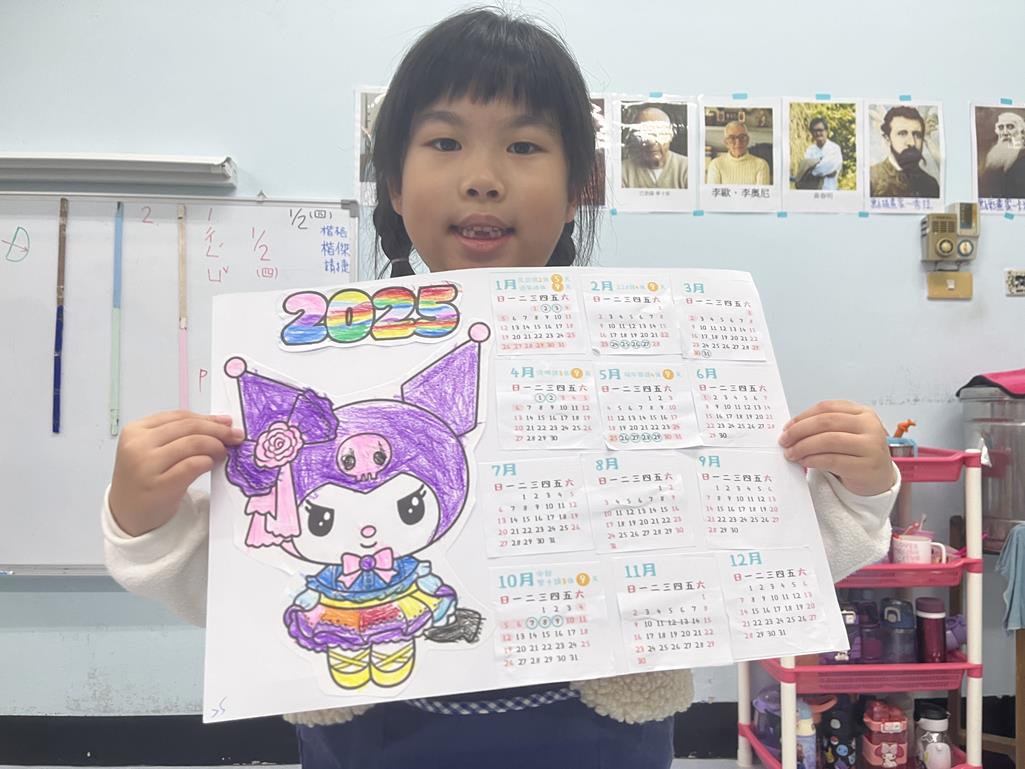 2.
1/2
(四)
1/2(四)
楷傑
靖捷
李歐・李奧尼
2025
1月
9天
日一二三四五六
1 2 3 4
5 6 7 8 9 10 11
12 13 14 15 16 17 18
19 20 21 22 23 24 25
26 27 28 29 30 31
2月
228請4休9天
日一二三四五六
1
2 3 4 5 6 7 8
9 10 11 12 13 14 15
16 17 18 19 20 21 22
23 24 25 26 27 28
3月
日一二三四五六
1
2 3 4 5 6 7 8
9 10 11 12 13 14 15
16 17 18 19 20 21 22
23 24 25 26 27 28 29
30 31
4月
清明請2休9天
日一二三四五六
1 2 3 4 5
6 7 8 9 10 11 12
13 14 15 16 17 18 19
20 21 22 23 24 25 26
27 28 29 30
5月
端午節請4休9天
日一二三四五六
1 2 3
4 5 6 7 8 9 10
11 12 13 14 15 16 17
18 19 20 21 22 23 24
25 26 27 28 29 30 31
6月
日一二三四五六
1 2 3 4 5 6 7
8 9 10 11 12 13 14
15 16 17 18 19 20 21
22 23 24 25 26 27 28
29 30
7月
日一二三四五六
1 2 3 4 5
6 7 8 9 10 11 12
13 14 15 16 17 18 19
20 21 22 23 24 25 26
27 28 29 30 31
8月
日一二三四五六
1 2
3 4 5 6 7 8 9
10 11 12 13 14 15 16
17 18 19 20 21 22 23
24 25 26 27 28 29 30
31
9月
日一二三四五六
1 2 3 4 5 6
7 8 9 10 11 12 13
14 15 16 17 18 19 20
21 22 23 24 25 26 27
28 29 30
10月
中秋
雙十請3休9天
日一二三四五六
1 2 3 4
5 6 7 8 9 10 11
12 13 14 15 16 17 18
19 20 21 22 23 24 25
26 27 28 29 30 31
11月
日一二三四五六
1
2 3 4 5 6 7 8
9 10 11 12 13 14 15
16 17 18 19 20 21 22
23 24 25 26 27 28 29
30
12月
日一二三四五六
1 2 3 4 5 6
7 8 9 10 11 12 13
14 15 16 17 18 19 20
21 22 23 24 25 26 27
28 29 30 31